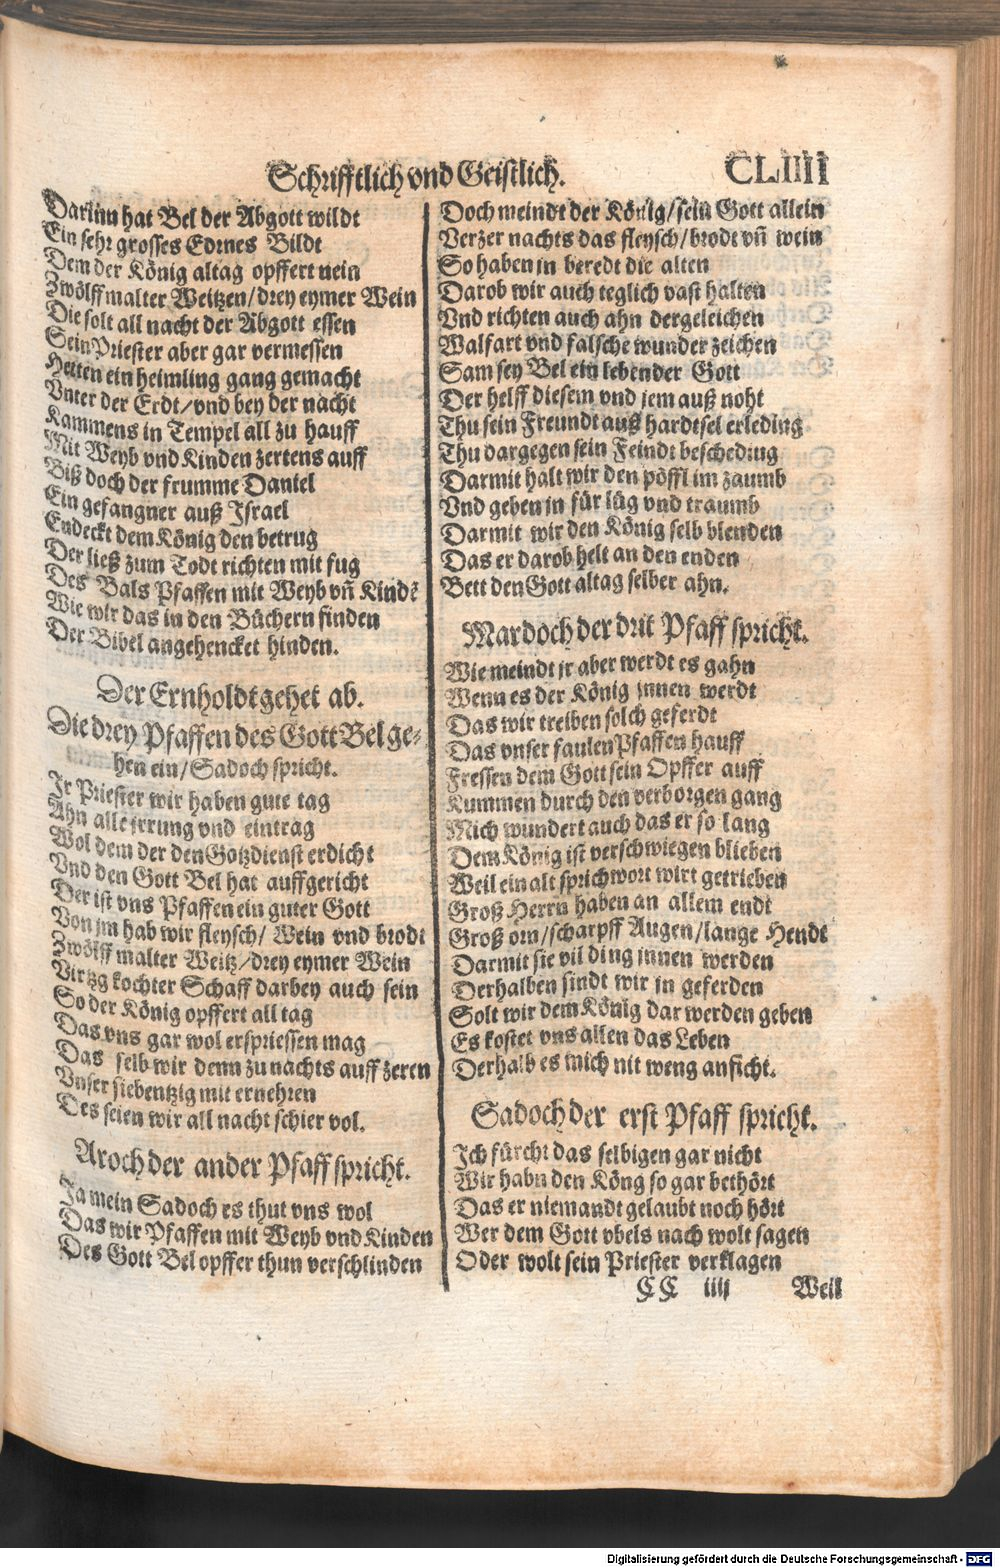 Schrifftlich vnd Geistlich.
CLIIII
Darinn hat Bel der Abgott wildt
Ein sehr grosses Edrnes Bildt
Dem der König altag opffert nein
Zwölff malter Weitzen/drey eymer Wein
Die solt all nacht der Abgott essen
Sein Priester aber gar vermessen
Hetten ein heimling gang gemacht
Vnter der Erdt/vnd bey der nacht
Kammens in Tempel all zu hauff
Mit Weyb vnd Kinden zertens auff
Biß doch der frumme Daniel
Ein gefangner auß Israel
Endeckt dem König den betrug
Der ließ zum Todt richten mit fug
Des Bals Pfaffen mit Weyb vñ Kindẽ
Wie wir das in den Büchern finden
Der Bibel angehencket hinden.
Der Ernholdt gehet ab.
Die drey Pfaffen des Gott Bel ge-
hen ein/Sadoch spricht.
Jr Priester wir haben gute tag
Ahn alle jrrung vnd eintrag
Wol dem der den Gotzdienst erdicht
Vnd den Gott Bel hat auffgericht
Der ist vns Pfaffen ein guter Gott
Von jm hab wir fleysch/ Wein vnd brodt
Zwölff malter Weitz/drey eymer Wein
Virtzg kochter Schaff darbey auch sein
So der König opffert all tag
Das vns gar wol erspriessen mag
Das selb wir denn zu nachts auff zeren
Vnser siebentzig mit ernehren
Des seien wir all nacht schier vol.
Aroch der ander Pfaff spricht.
Ja mein Sadoch es thut vns wol
Das wir Pfaffen mit Weyb vnd Kinden
Des Gott Bel opffer thun verschlinden
Doch meindt der König/sein Gott allein
Verzer nachts das fleysch/brodt vñ wein
So haben jn beredt die alten
Darob wir auch teglich vast halten
Vnd richten auch ahn dergeleichen
Walfart vnd falsche wunder zeichen
Sam sey Bel ein lebender Gott
Der helff diesem vnd jem auß noht
Thu sein Freundt auß hardtsel erleding
Thu dargegen sein Feindt bescheding
Darmit halt wir den pöffl im zaumb
Vnd geben jn für lüg vnd traumb
Darmit wir den König selb blenden
Das er darob helt an den enden
Bett den Gott altag selber ahn.
Mardoch der drit Pfaff spricht.
Wie meindt jr aber werdt es gahn
Wenn es der König jnnen werdt
Das wir treiben solch geferdt
Das vnser faulen Pfaffen hauff
Fressen dem Gott sein Opffer auff
Kummen durch den verborgen gang
Mich wundert auch das er so lang
Dem König ist verschwiegen blieben
Weil ein alt sprichwort wirt getrieben
Groß Herrn haben an allem endt
Groß orn/scharpff Augen/lange Hendt
Darmit sie vil ding jnnen werden
Derhalben sindt wir in geferden
Solt wir dem König dar werden geben
Es kostet vns allen das Leben
Derhalb es mich nit weng anficht.
Sadoch der erst Pfaff spricht.
Ich fürcht das selbigen gar nicht
Wir habn den Köng so gar bethört
Das er niemandt gelaubt noch hört
Wer dem Gott vbels nach wolt sagen
Oder wolt sein Priester verklagen
CC iiij
Weil
Digitalisierung gefördert durch die Deutsche Forschungsgemeinschaft - DFG